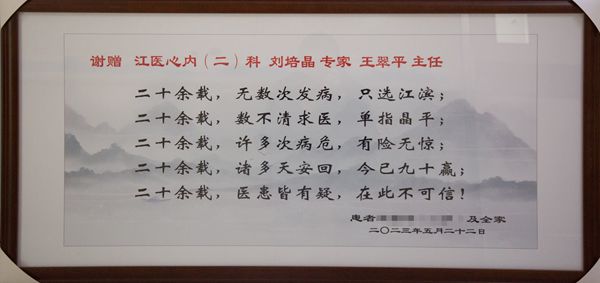 谢赠 江医心内（二）科 刘培晶 专家 王翠平 主任
二十余载，无数次发病，只选江滨；
二十余载，数不清求医，单指晶平；
二十余载，许多次病危，有险无惊；
二十余载，诸多天安回，今已九十赢；
二十余载，医患皆有疑，在此不可信！
患者 及全家
二〇二三年五月二十二日